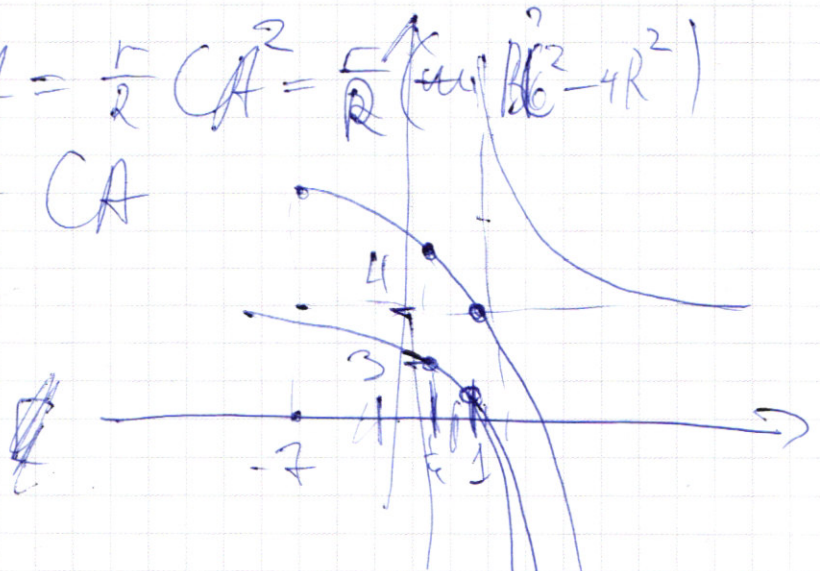 = r/R CA² = r/R ( B6² - 4R² )
CA
4
3
-7 1